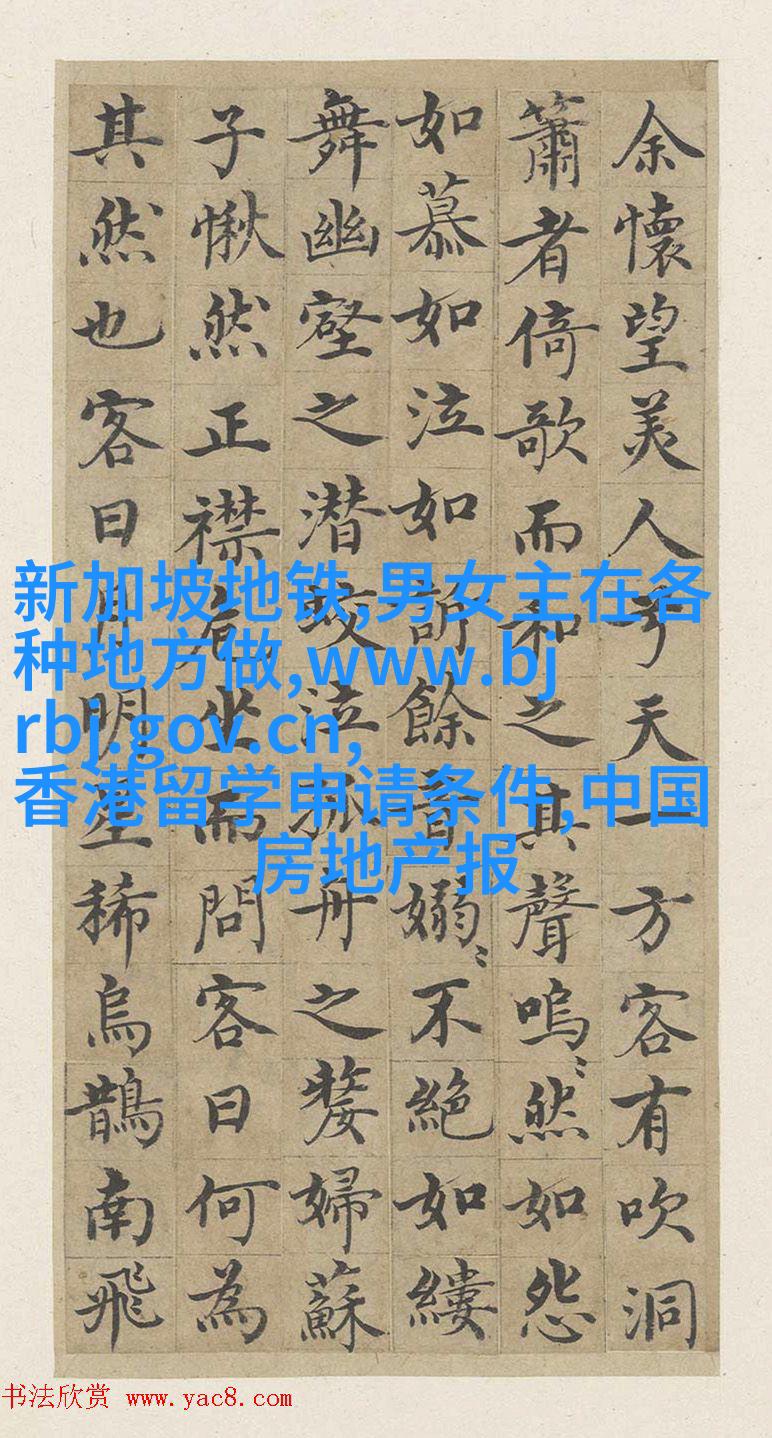 余懷望美人兮天一方客有吹洞
簫者倚歌而和之其聲嗚〻然如怨
如慕如泣如訴餘音嫋〻不絶如縷
舞幽壑之潜蛟泣孤舟之嫠婦蘇
子愀然正襟危坐而問客曰何為
其然也客曰月明星稀烏鵲南飛
新加坡地铁,男女主在各
种地方做,www.bj
rbj.gov.cn,
香港留学申请条件,中国
房地产报
书法欣赏 www.yac8.com